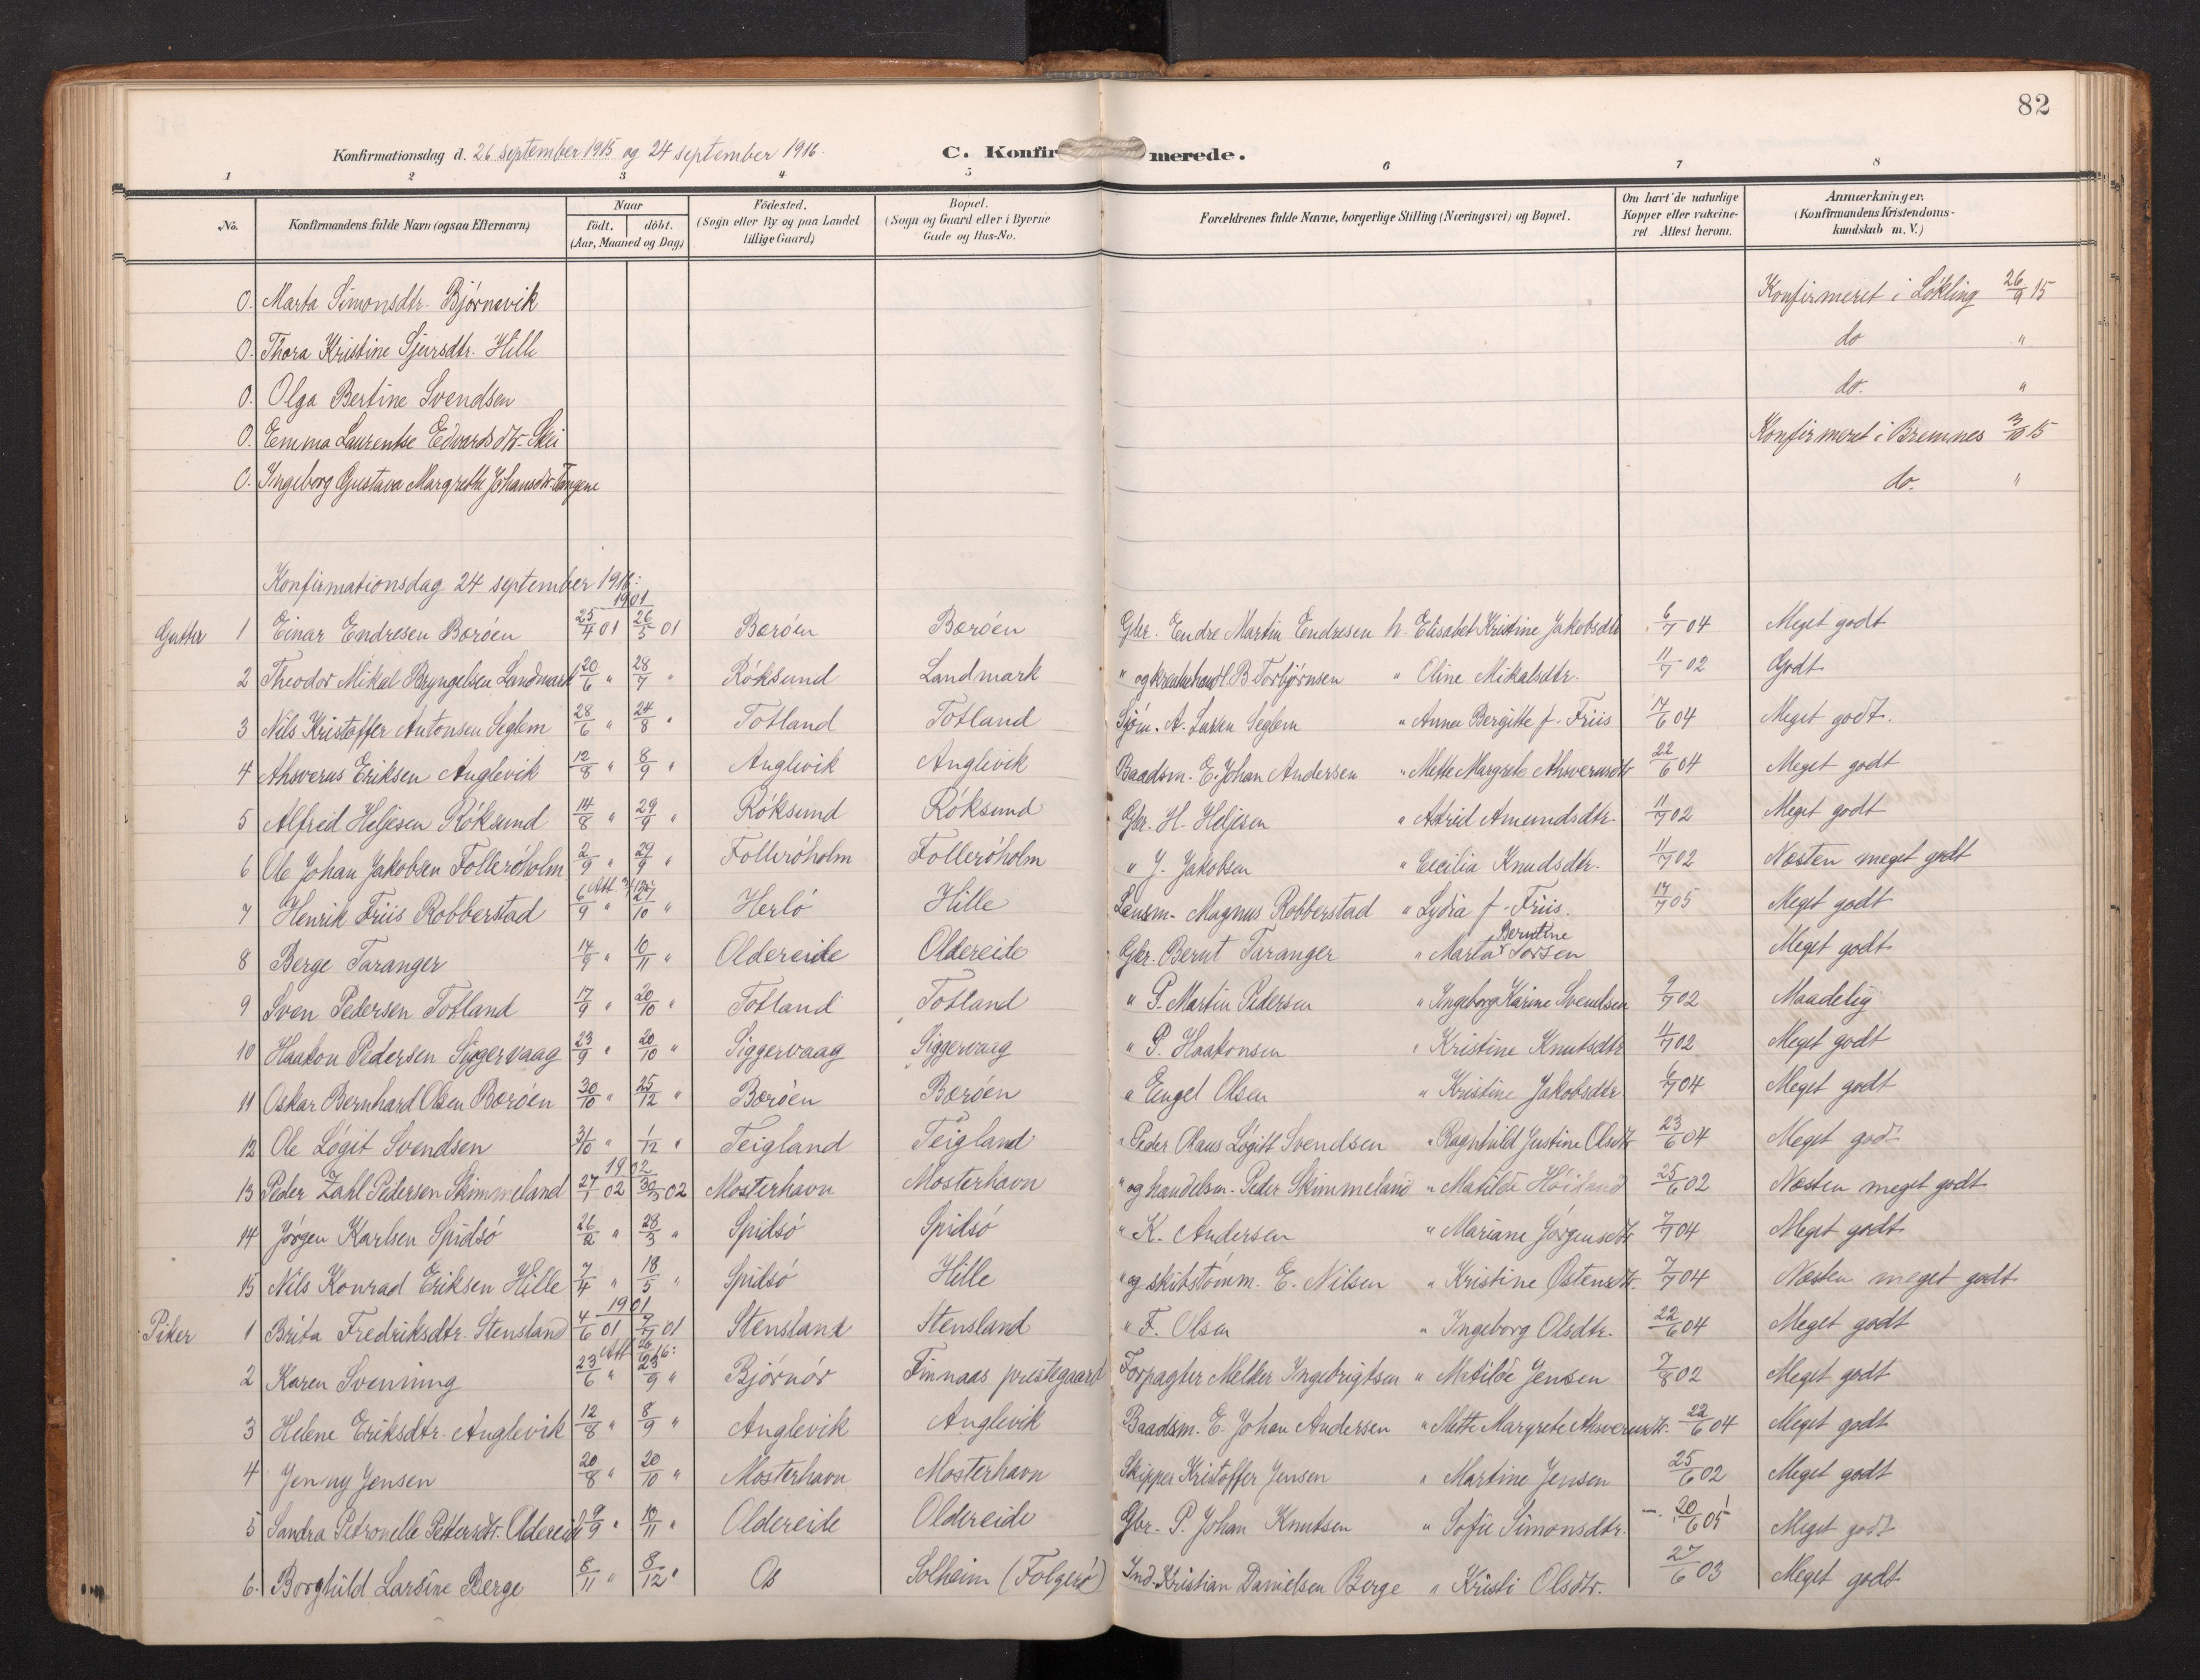 82
Konfirmationsdag d. 26 september 1915 og 24 september 1916. C. Konfirmerede.
1 2 3 4 5 6 7 8
No. Konfirmandens fulde Navn (ogsaa Efternavn) Naar födt. döbt. (Aar, Maaned og Dag) Födested. (Sogn eller By og paa Landet tillige Gaard) Bopæl. (Sogn og Gaard eller i Byerne Gade og Hus-No. Forældrenes fulde Navne, borgerlige Stilling (Næringsvei) og Bopæl. Om havt de naturlige Kopper eller vakcineret. Attest herom. Anmærkninger. (Konfirmandens Kristendomskundskab m. V.)
0. Marta Simonsdtr. Bjørnevik Konfirmeret i Løkling 26/9 15
0. Thora Kristine Sjursdtr. Hille do "
0. Olga Bertine Svendsen do. "
0. Emma Laurentse Edvardsdtr. Skei Konfirmeret i Bremnes 3/10 15
0. Ingeborg Gustava Margrethe Johansdtr. do. "
Konfirmationsdag 24 september 1916:
1901
Gutter 1 Einar Endresen Børøen 25/4 01 26/5 01 Børøen Børøen Gbr. Endre Martin Endresen h. Elisabet Kristine Jakobsdtr 6/7 04 Meget godt
2 Theodor Mikal Bryngelsen Landmark 20/6 " 28/7 " Røksund Landmark " og B. Torbjørnsen " Oline Mikalsdtr. 11/7 02 Godt
3 Nils Kristoffer Antonsen Seglem 28/6 " 24/8 " Totland Totland Sjøm. A. Larsen Seglem " Anna Bergitte f. Friis 17/6 04 Meget godt.
4 Ahsverus Eriksen Anglevik 12/8 " 8/9 " Anglevik Anglevik Baadsm. E. Johan Andersen " Mette Margrete Ahsverusdtr 22/6 04 Meget godt
5 Alfred Heljesen Røksund 14/8 " 29/9 " Røksund Røksund Gbr. H. Heljesen " Astrid Amundsdtr. 11/7 02 Meget godt
6 Ole Johan Jakobsen Follerøholm 2/9 " 29/9 " Follerøholm Follerøholm " J. Jakobsen " Cecilia Knudsdtr. 11/7 02 Næsten meget godt
7 Henrik Friis Robberstad 6/9 " 27/10 " Herlø Hille Lensm. Magnus Robberstad " Lydia f. Friis. 17/7 05 Meget godt
8 Berge Taranger 14/9 " 10/11 " Oldereide Oldereide Gbr. Bernt Taranger " Marta Berntine Torsen Meget godt
9 Sven Pedersen Totland 17/9 " 20/10 " Totland Totland " P. Martin Pedersen " Ingeborg Karine Svendsen 9/7 02 Maadelig
10 Haakon Pedersen Siggervaag 23/9 " 20/10 " Siggervaag Siggervaag " P. Haakonsen " Kristine Knutsdtr 4/7 02 Meget godt
11 Oskar Bernhard Olsen Børøen 30/10 " 25/12 " Børøen Børøen " Engel Olsen " Kristine Jakobsdtr. 6/7 04 Meget godt
12 Ole Løgit Svendsen 31/10 " 1/12 " Teigland Teigland " Peder Olaus Løgitt Svendsen " Ragnhild Justine Olsdtr 23/6 04 Meget godt
1902
13 Peder Zahl Pedersen Skimmeland 27/1 02 30/3 02 Mosterhavn Mosterhavn " og handelsm. Peder Skimmeland " Matilde Høiland 25/6 02 Næsten meget godt
14 Jørgen Karlsen Spidsø 26/2 " 28/3 " Spidsø Spidsø " K. Andersen " Mariane Jørgensdtr 7/7 04 Meget godt
15 Nils Konrad Eriksen Hille 7/4 " 18/5 " Spidsø Hille " og skibstømm. E. Nilsen " Kristine Østensdtr. 7/7 04 Næsten meget godt
1901
Piker 1 Brita Fredriksdtr. Stensland 4/6 01 7/7 01 Stensland Stensland " F. Olsen " Ingeborg Olsdtr. 22/6 04 Meget godt
2 Karen Svenning 23/6 " 23/9 " Bjørnør Finnaas prestegaard Forpagter Melker Ingebrigtsen " Matilde Jensen 7/8 02 Meget godt
3 Helene Eriksdtr. Anglevik 12/8 " 8/9 " Anglevik Anglevik Baadsm. E. Johan Andersen " Mette Margrete Ahsverusdtr. 22/6 04 Meget godt
4 Jenny Jensen 20/8 " 20/10 " Mosterhavn Mosterhavn Skipper Kristoffer Jensen " Martine Jensen 25/6 02 Meget godt
5 Sandra Petronelle Pettersdtr. Oldereide 9/9 " 10/11 " Oldereide Oldereide Gbr. P. Johan Knutsen " Sofie Simonsdtr. 20/6 05 Meget godt
6. Borghild Larsine Berge 8/11 " 8/12 " Os Solheim (Folgerø) Ind. Kristian Danielsen Berge " Kristi Olsdtr. 27/6 03 Meget godt